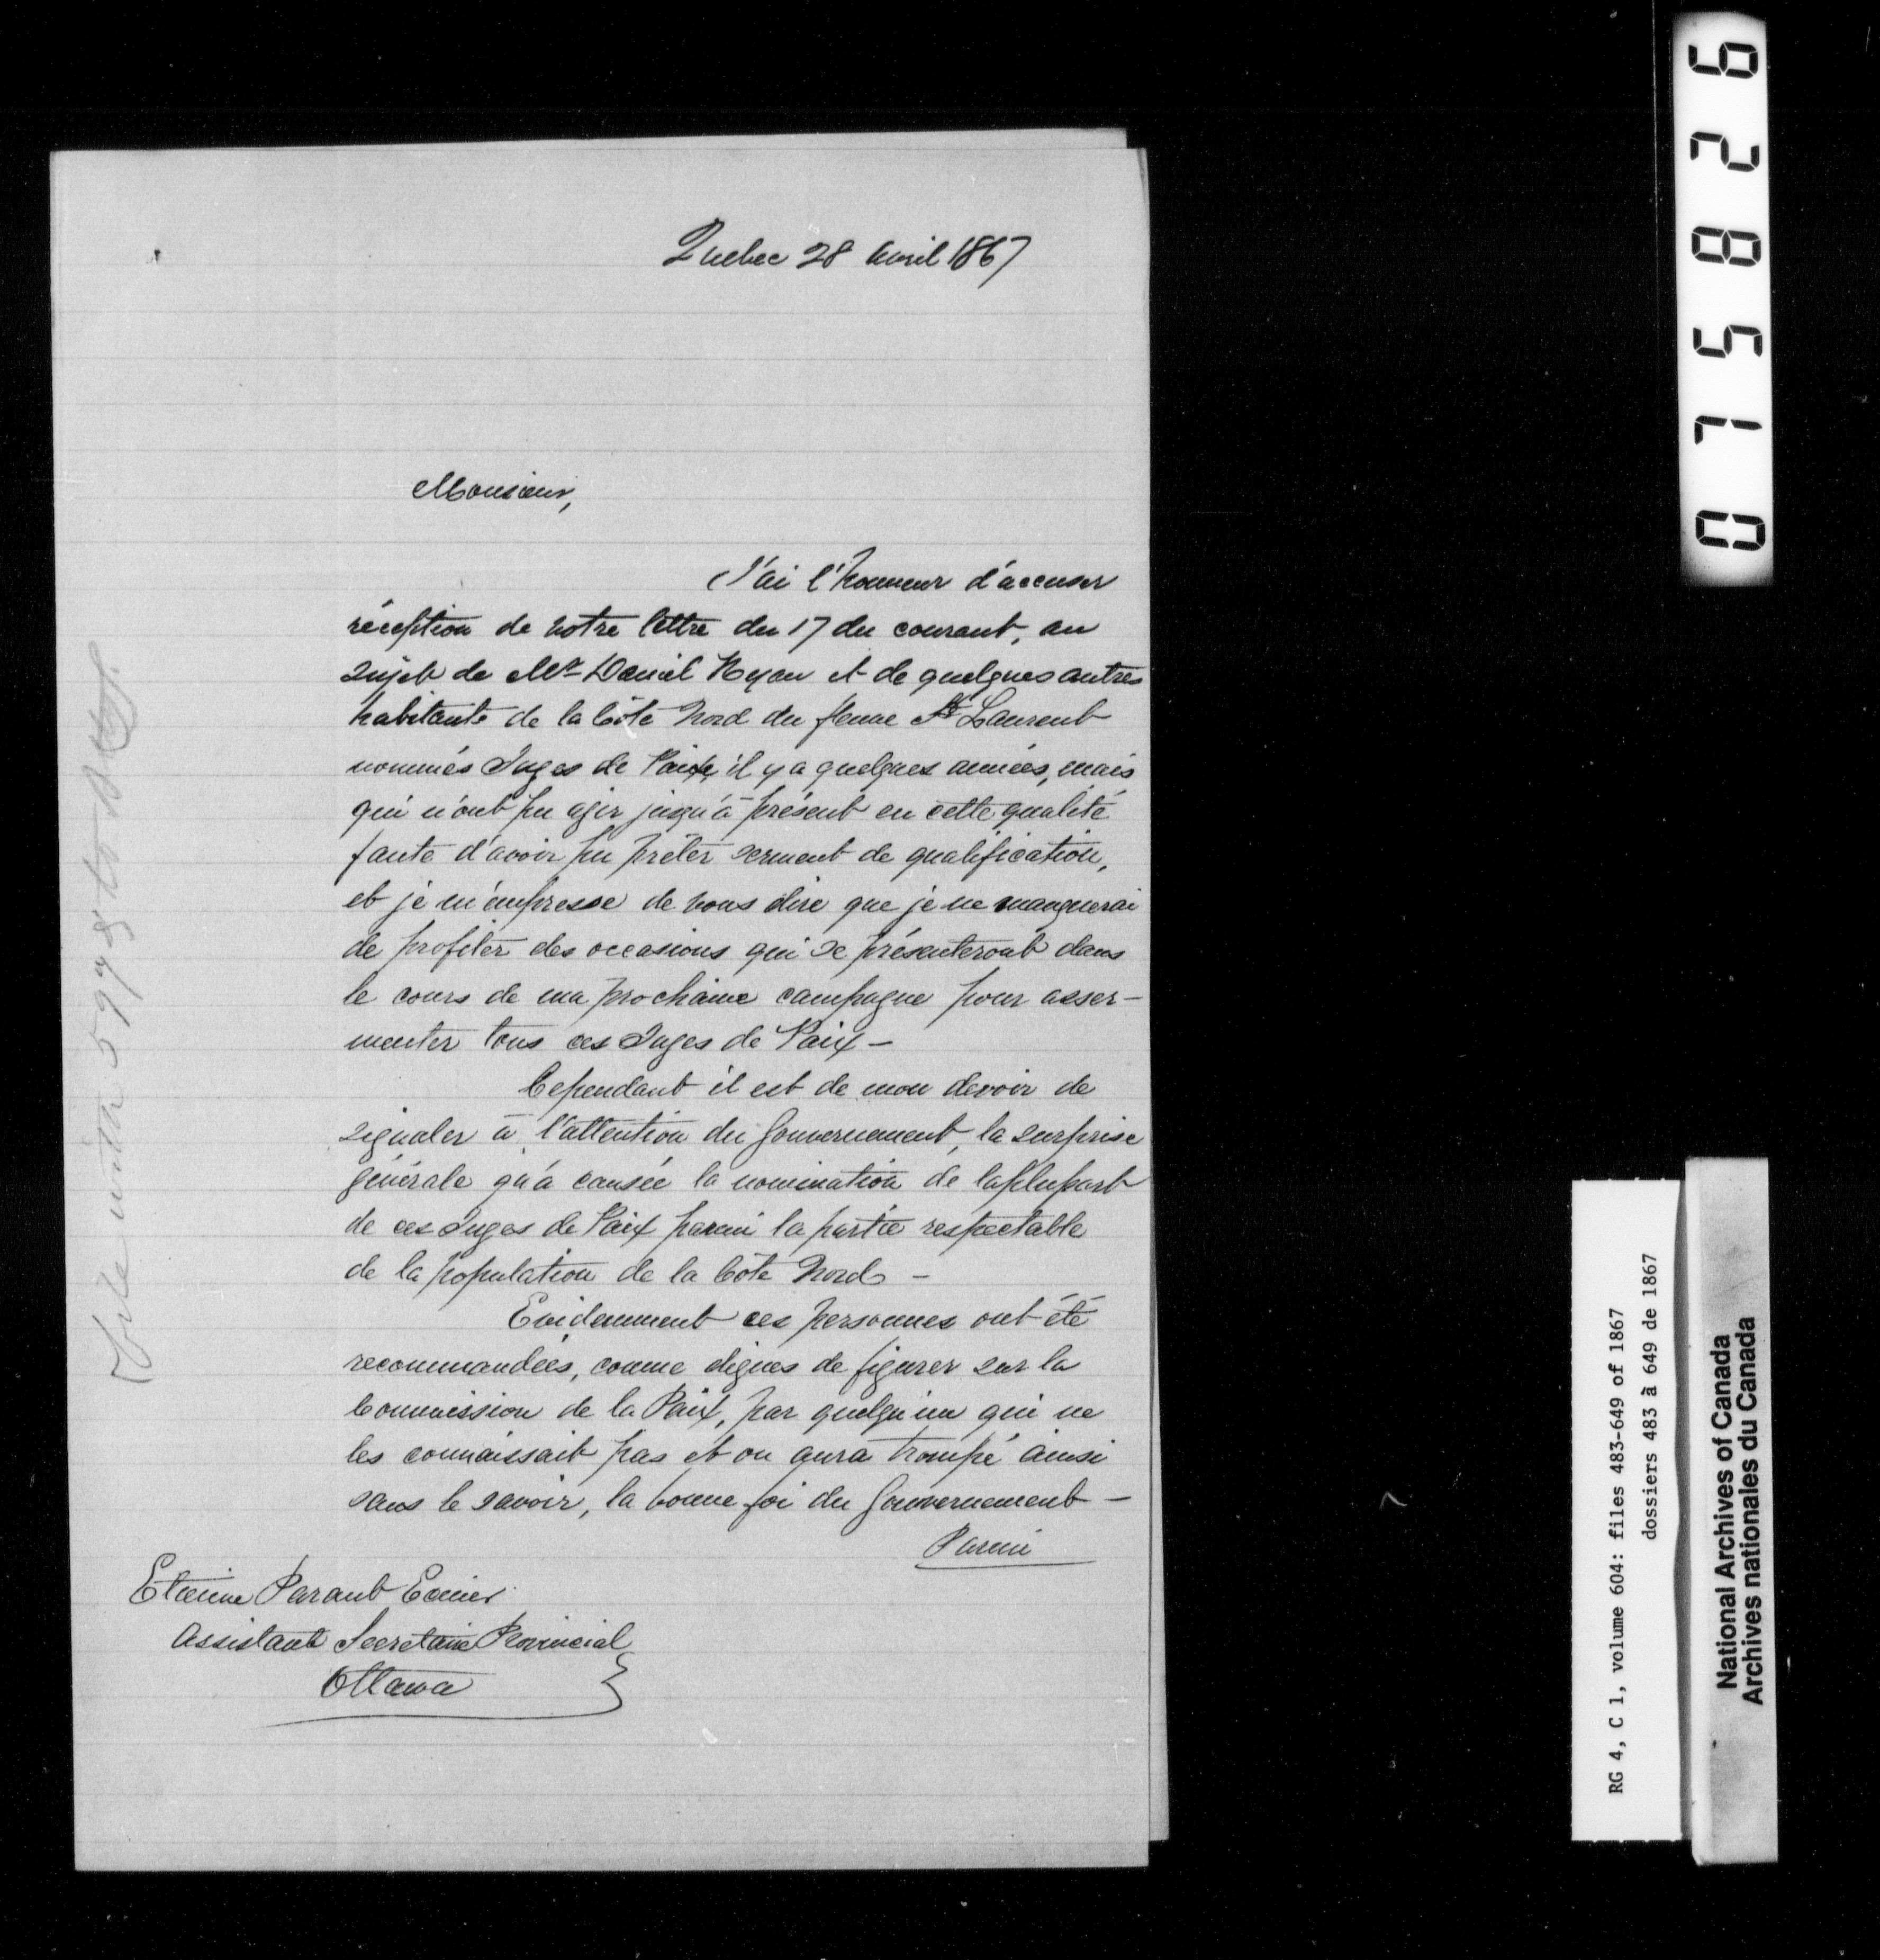 Quebec 28 avril 1867
Monsieur,
J'ai l'honneur d'accuser
réception de votre lettre du 17 du courant, au
sujet de Mr Daniel Ryan et de quelques autres
habitants de la Côte Nord du fleuve St Laurent
nommés Juges de Paix, il y a quelques années, mais
qui n'ont pu agir jusqu'à présent en cette qualité
faute d'avoir pu prêter serment de qualification,
et je m'empresse de vous dire que je ne manquerai
de profiter des occasions qui se présenteront dans
le cours de ma prochaine campagne pour asser-
menter tous ces Juges de Paix -
Cependant il est de mon devoir de
signaler à l'attention du Gouvernement, la surprise
générale qu'a causée la nomination de la plupart
de ces Juges de Paix parmi la partie respectable
de la population de la Côte Nord -
Evidemment ces personnes ont été
recommandées, comme dignes de figurer sur la
Commission de la Paix, par quelqu'un qui ne
les connaissait pas et on aura trompé ainsi
sans le savoir, la bonne foi du Gouvernement -
Parmi
Etienne Parant Ecuier
Assistant Secretaire Provincial
Ottawa
File with 599
075826
RG 4, C 1, volume 604: files 483-649 of 1867
dossiers 483 à 649 de 1867
National Archives of Canada
Archives nationales du Canada